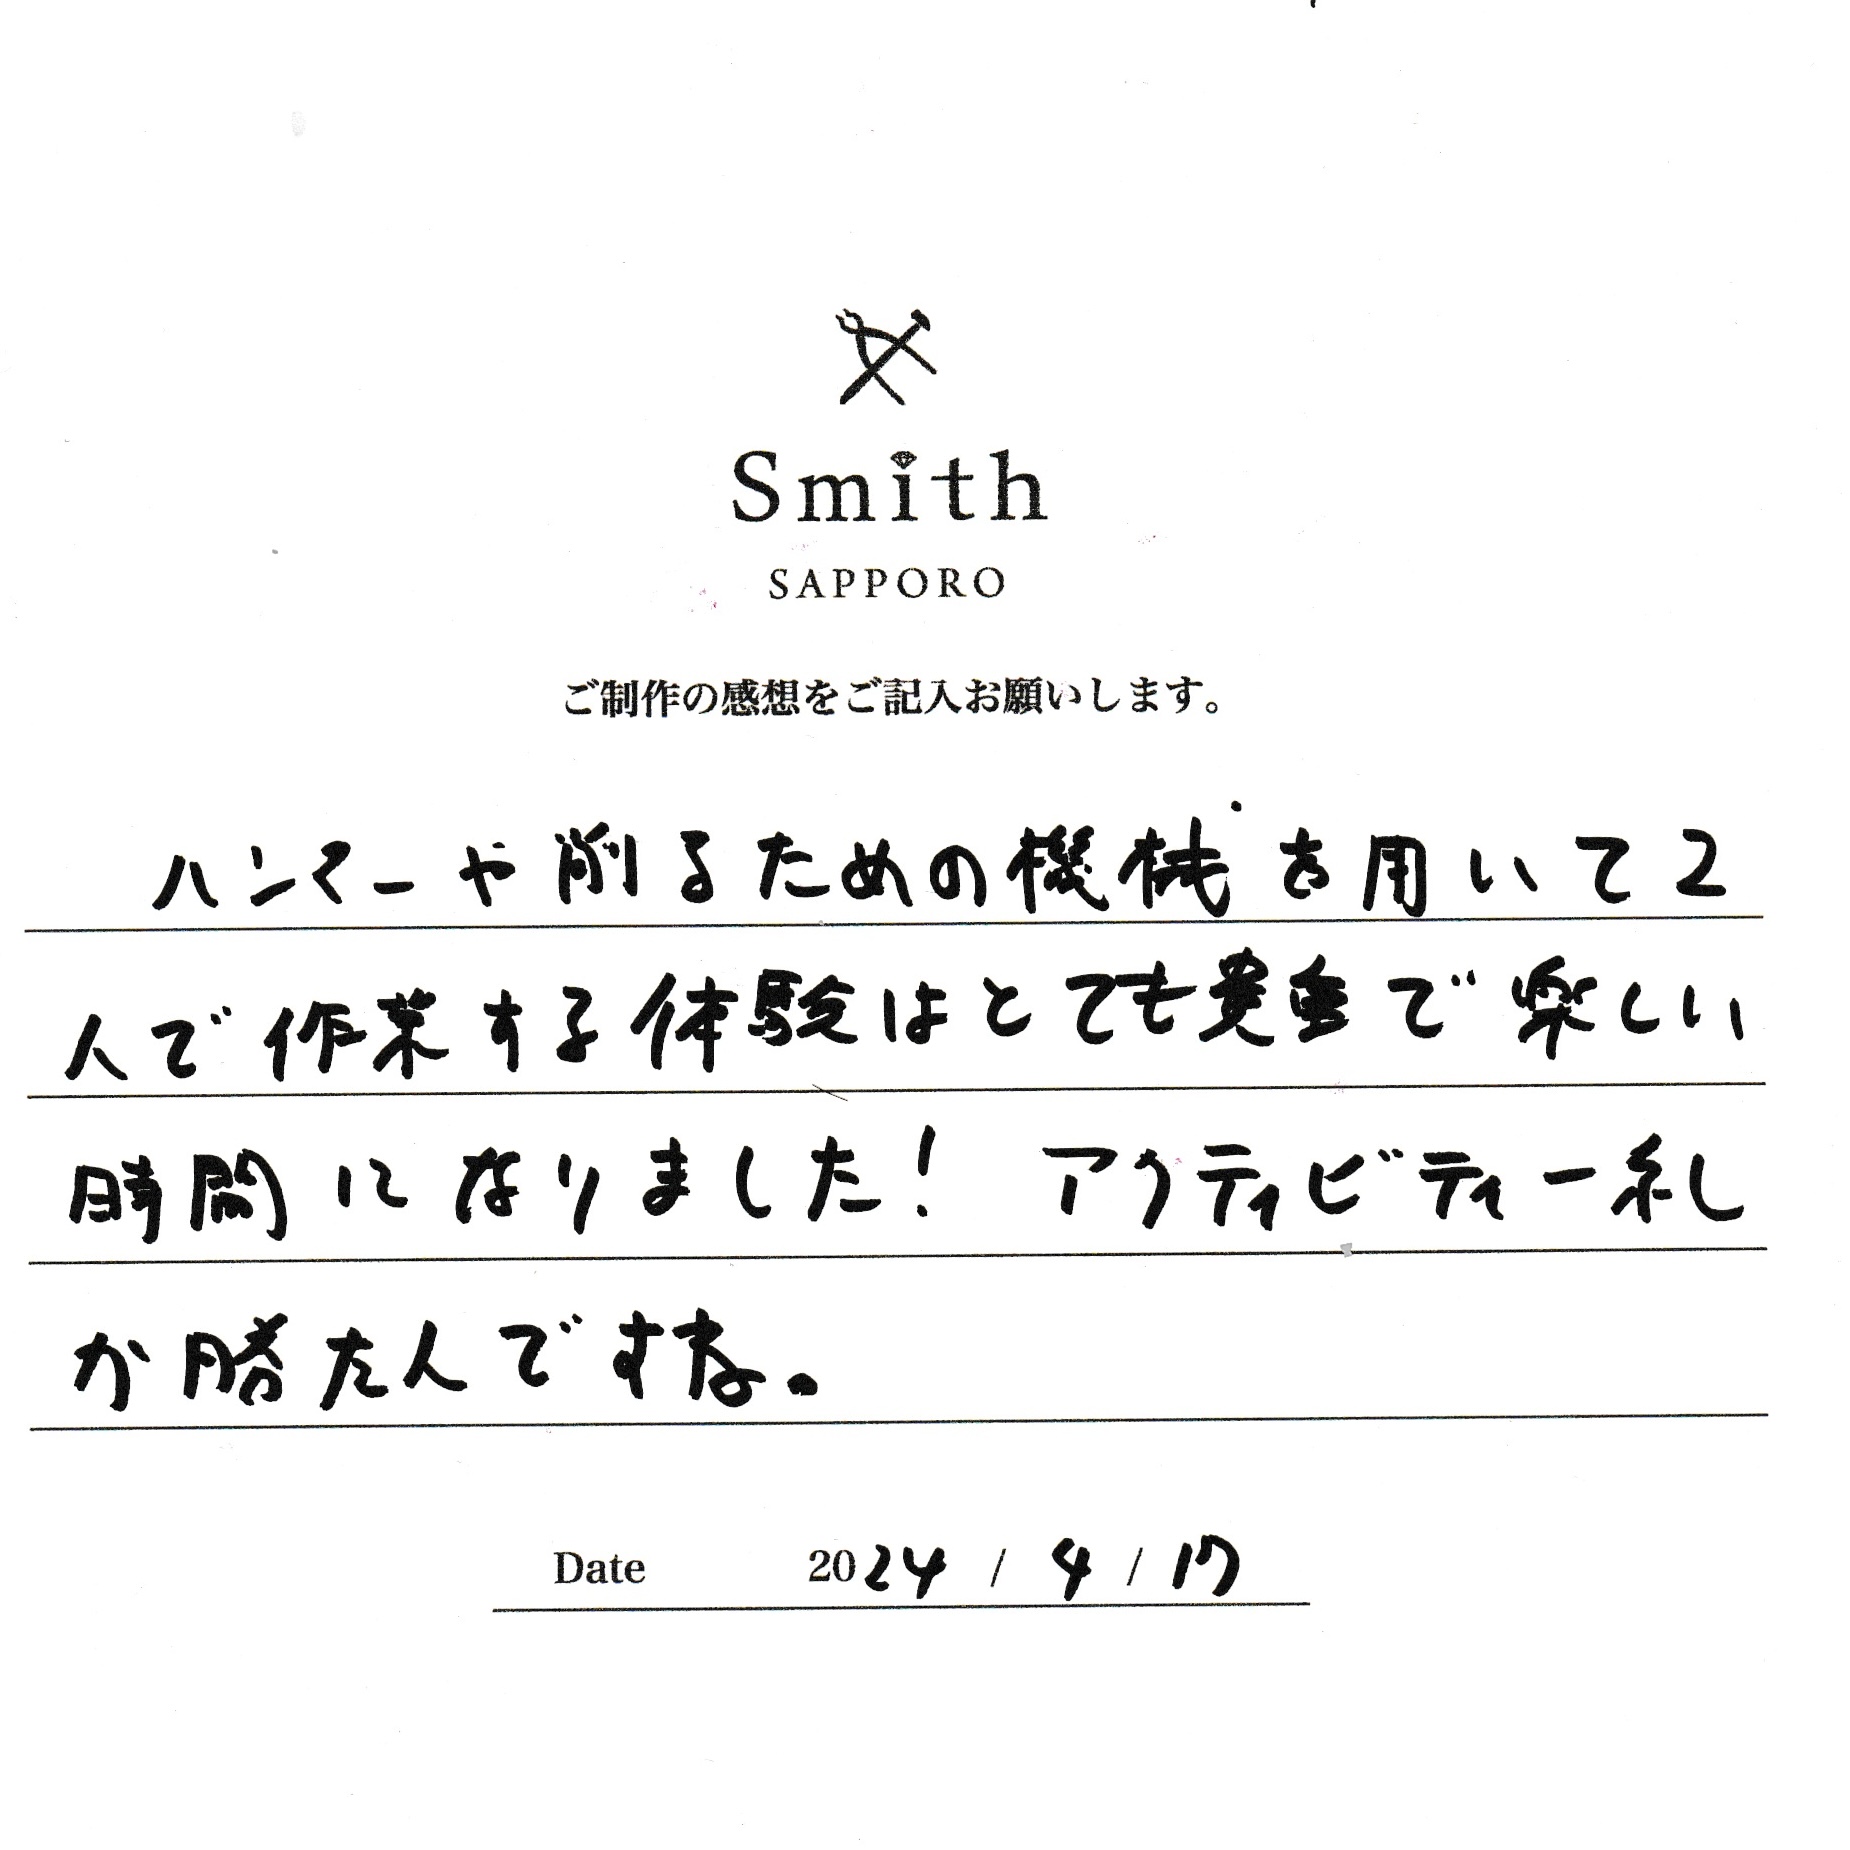 Smith
SAPPORO
ご制作の感想をご記入お願いします。
ハンマーや削るための機械を用いて2
人で作業する体験はとても貴重で楽しい
時間になりました! アクティビティー札
が勝たんですね。
Date 2024 / 4 / 17